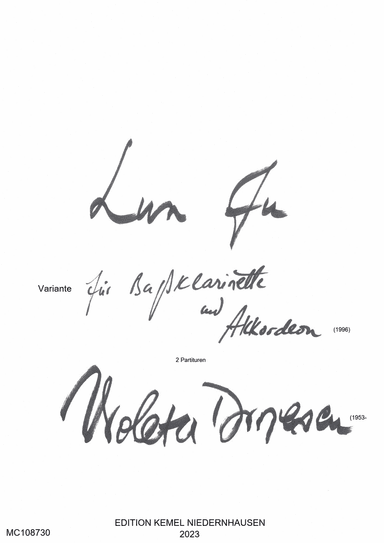 Lun Fu
Variante für Baßklarinette
und
Akkordeon (1996)
2 Partituren
Violeta Dinescu (1953-
EDITION KEMEL NIEDERNHAUSEN
2023
MC108730